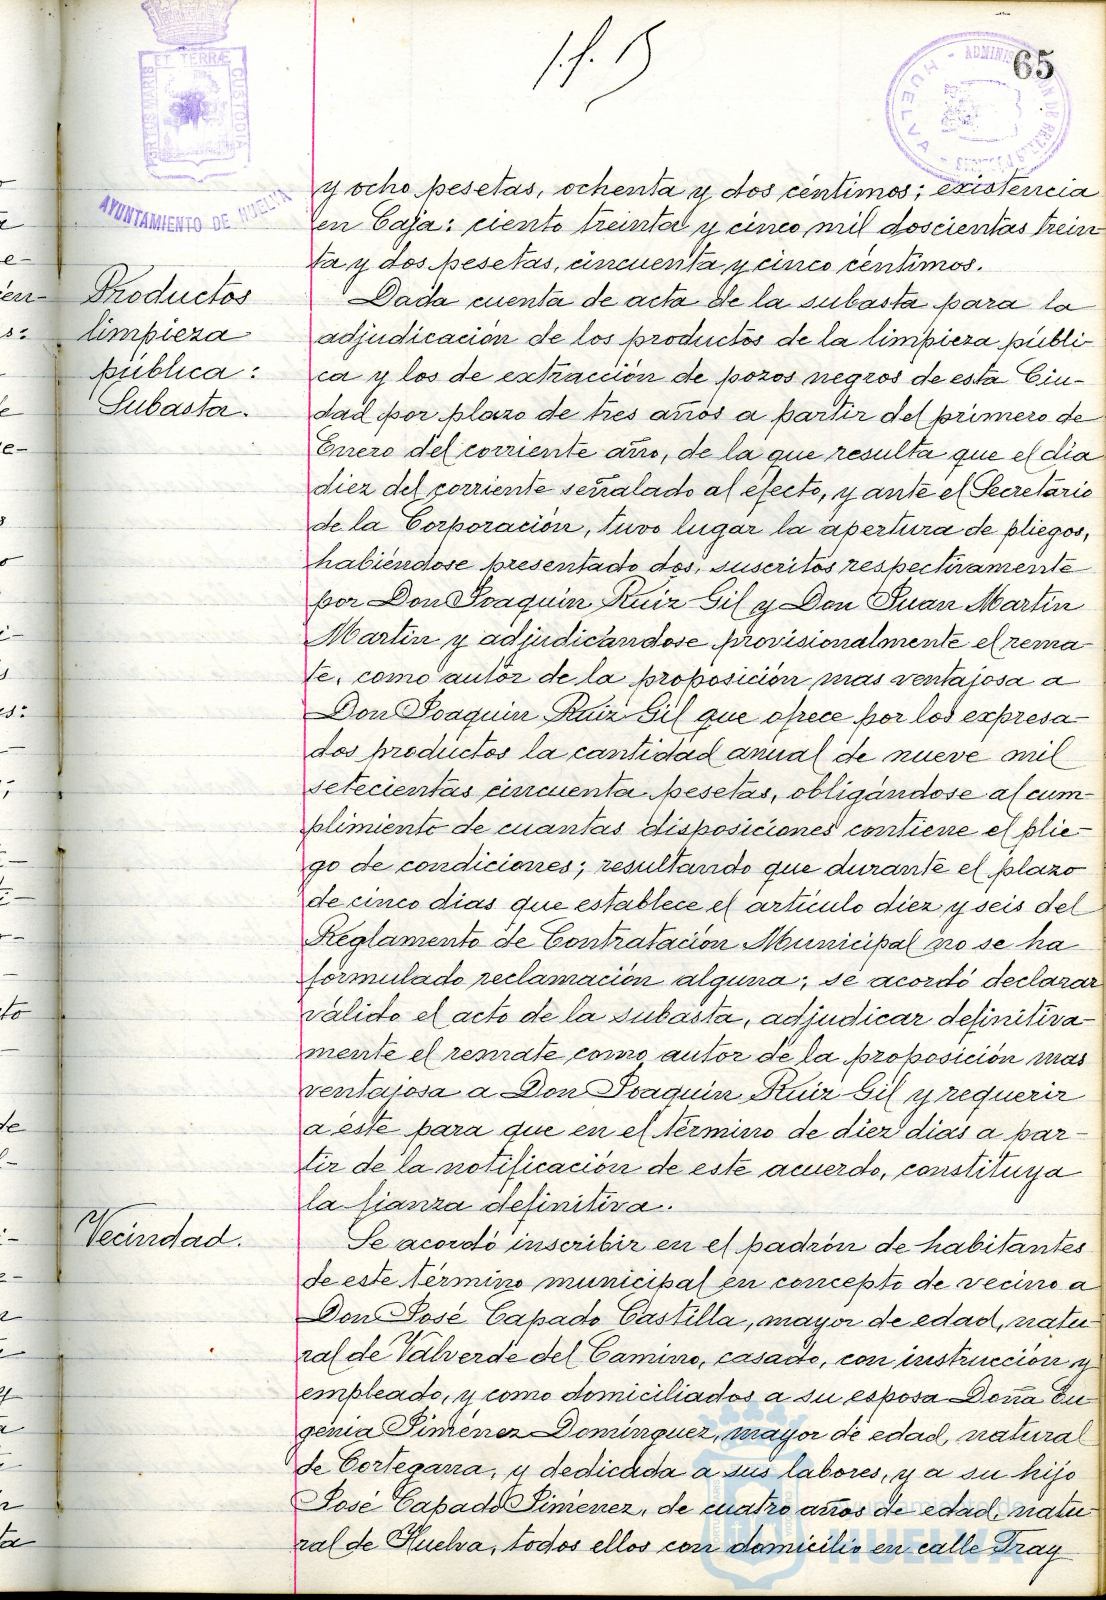 65
PORTUS MARIS ET TERRÆ CUSTODIA
AYUNTAMIENTO DE HUELVA
y ocho pesetas, ochenta y dos céntimos; existencia
en Caja: ciento treinta y cinco mil doscientas trein
ta y dos pesetas, cincuenta y cinco céntimos.
Productos
limpieza
pública:
Subasta.
Dada cuenta de acta de la subasta para la
adjudicación de los productos de la limpieza públi-
ca y los de extracción de pozos negros de esta Ciu-
dad por plazo de tres años a partir del primero de
Enero del corriente año, de la que resulta que el dia
diez del corriente señalado al efecto, y ante el Secretario
de la Corporación, tuvo lugar la apertura de pliegos,
habiéndose presentado dos, suscritos respectivamente
por Don Joaquin Ruiz Gil y Don Juan Martin
Martin y adjudicándose provisionalmente el rema-
te, como autor de la proposición mas ventajosa a
Don Joaquin Ruiz Gil que ofrece por los expresa-
dos productos la cantidad anual de nueve mil
setecientas cincuenta pesetas, obligándose al cum-
plimiento de cuantas disposiciones contiene el plie-
go de condiciones; resultando que durante el plazo
de cinco dias que establece el artículo diez y seis del
Reglamento de Contratación Municipal no se ha
formulado reclamación alguna; se acordó declarar
válido el acto de la subasta, adjudicar definitiva-
mente el remate como autor de la proposición mas
ventajosa a Don Joaquin Ruiz Gil y requerir
a éste para que en el término de diez dias a par-
tir de la notificación de este acuerdo, constituya
la fianza definitiva.
Vecindad.
Se acordó inscribir en el padrón de habitantes
de este término municipal en concepto de vecino a
Don José Capado Castilla, mayor de edad, natu
ral de Valverde del Camino, casado, con instrucción y
empleado, y como domiciliados a su esposa Doña Eu
genia Jiménez Domínguez, mayor de edad, natural
de Cortegana, y dedicada a sus labores, y a su hijo
José Capado Jiménez, de cuatro años de edad, natu
ral de Huelva, todos ellos con domicilio en calle Fray